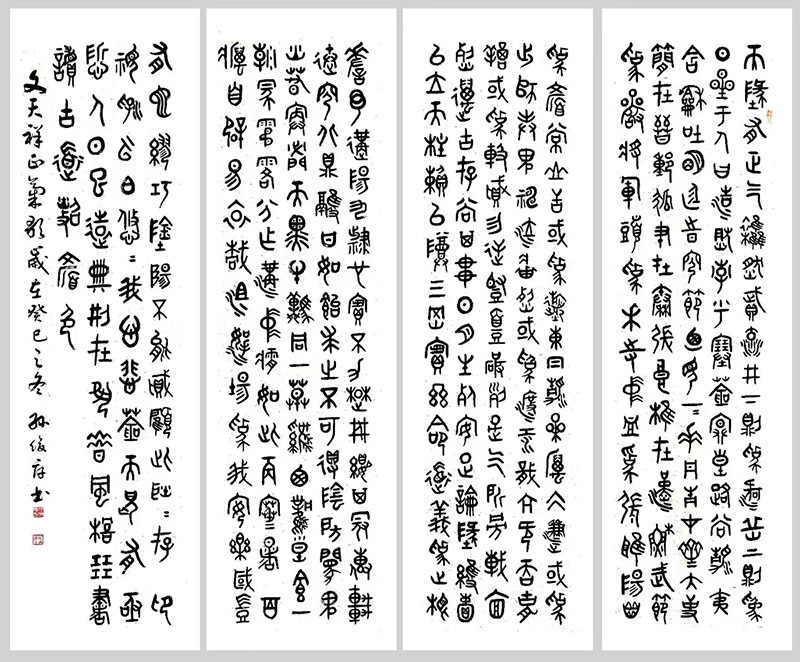 天地有正氣雜然賦流形下則為河嶽上則為
日星於人曰浩然沛乎塞蒼冥皇路當清夷
含和吐明庭時窮節乃見一一垂丹青在齊太史
簡在晉董狐筆在秦張良椎在漢蘇武節
為嚴將軍頭為嵇侍中血為張睢陽齒
為顏常山舌或為遼東帽清操厲冰雪或為
出師表鬼神泣壯烈或為渡江楫慷慨吞胡
羯或為擊賊笏逆豎頭破裂是氣所磅礴凜
烈萬古存當其貫日月生死安足論地維賴
以立天柱賴以尊三綱實系命道義為之根
嗟予遘陽九隸也實不力楚囚纓其冠傳車
送窮北鼎鑊甘如飴求之不可得陰房闐鬼
火春院閉天黑牛驥同一皂雞棲鳳凰食一
朝蒙霧露分作溝中瘠如此再寒暑百
癘自辟易哀哉沮洳場為我安樂國豈
有他繆巧陰陽不能賊顧此耿耿在仰
視浮雲白悠悠我心悲蒼天曷有極
哲人日已遠典刑在夙昔風檐展書
讀古道照顏色
文天祥正氣歌歲在癸巳之冬孫俊書